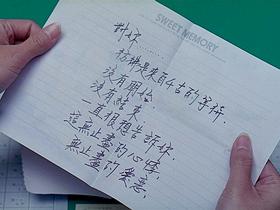 SWEET MEMORY
對你……
彷彿是來自千古的等待.
沒有開始.
沒有結束.
一直很想告訴你.
這無止盡的心事,
無止盡的愛意,